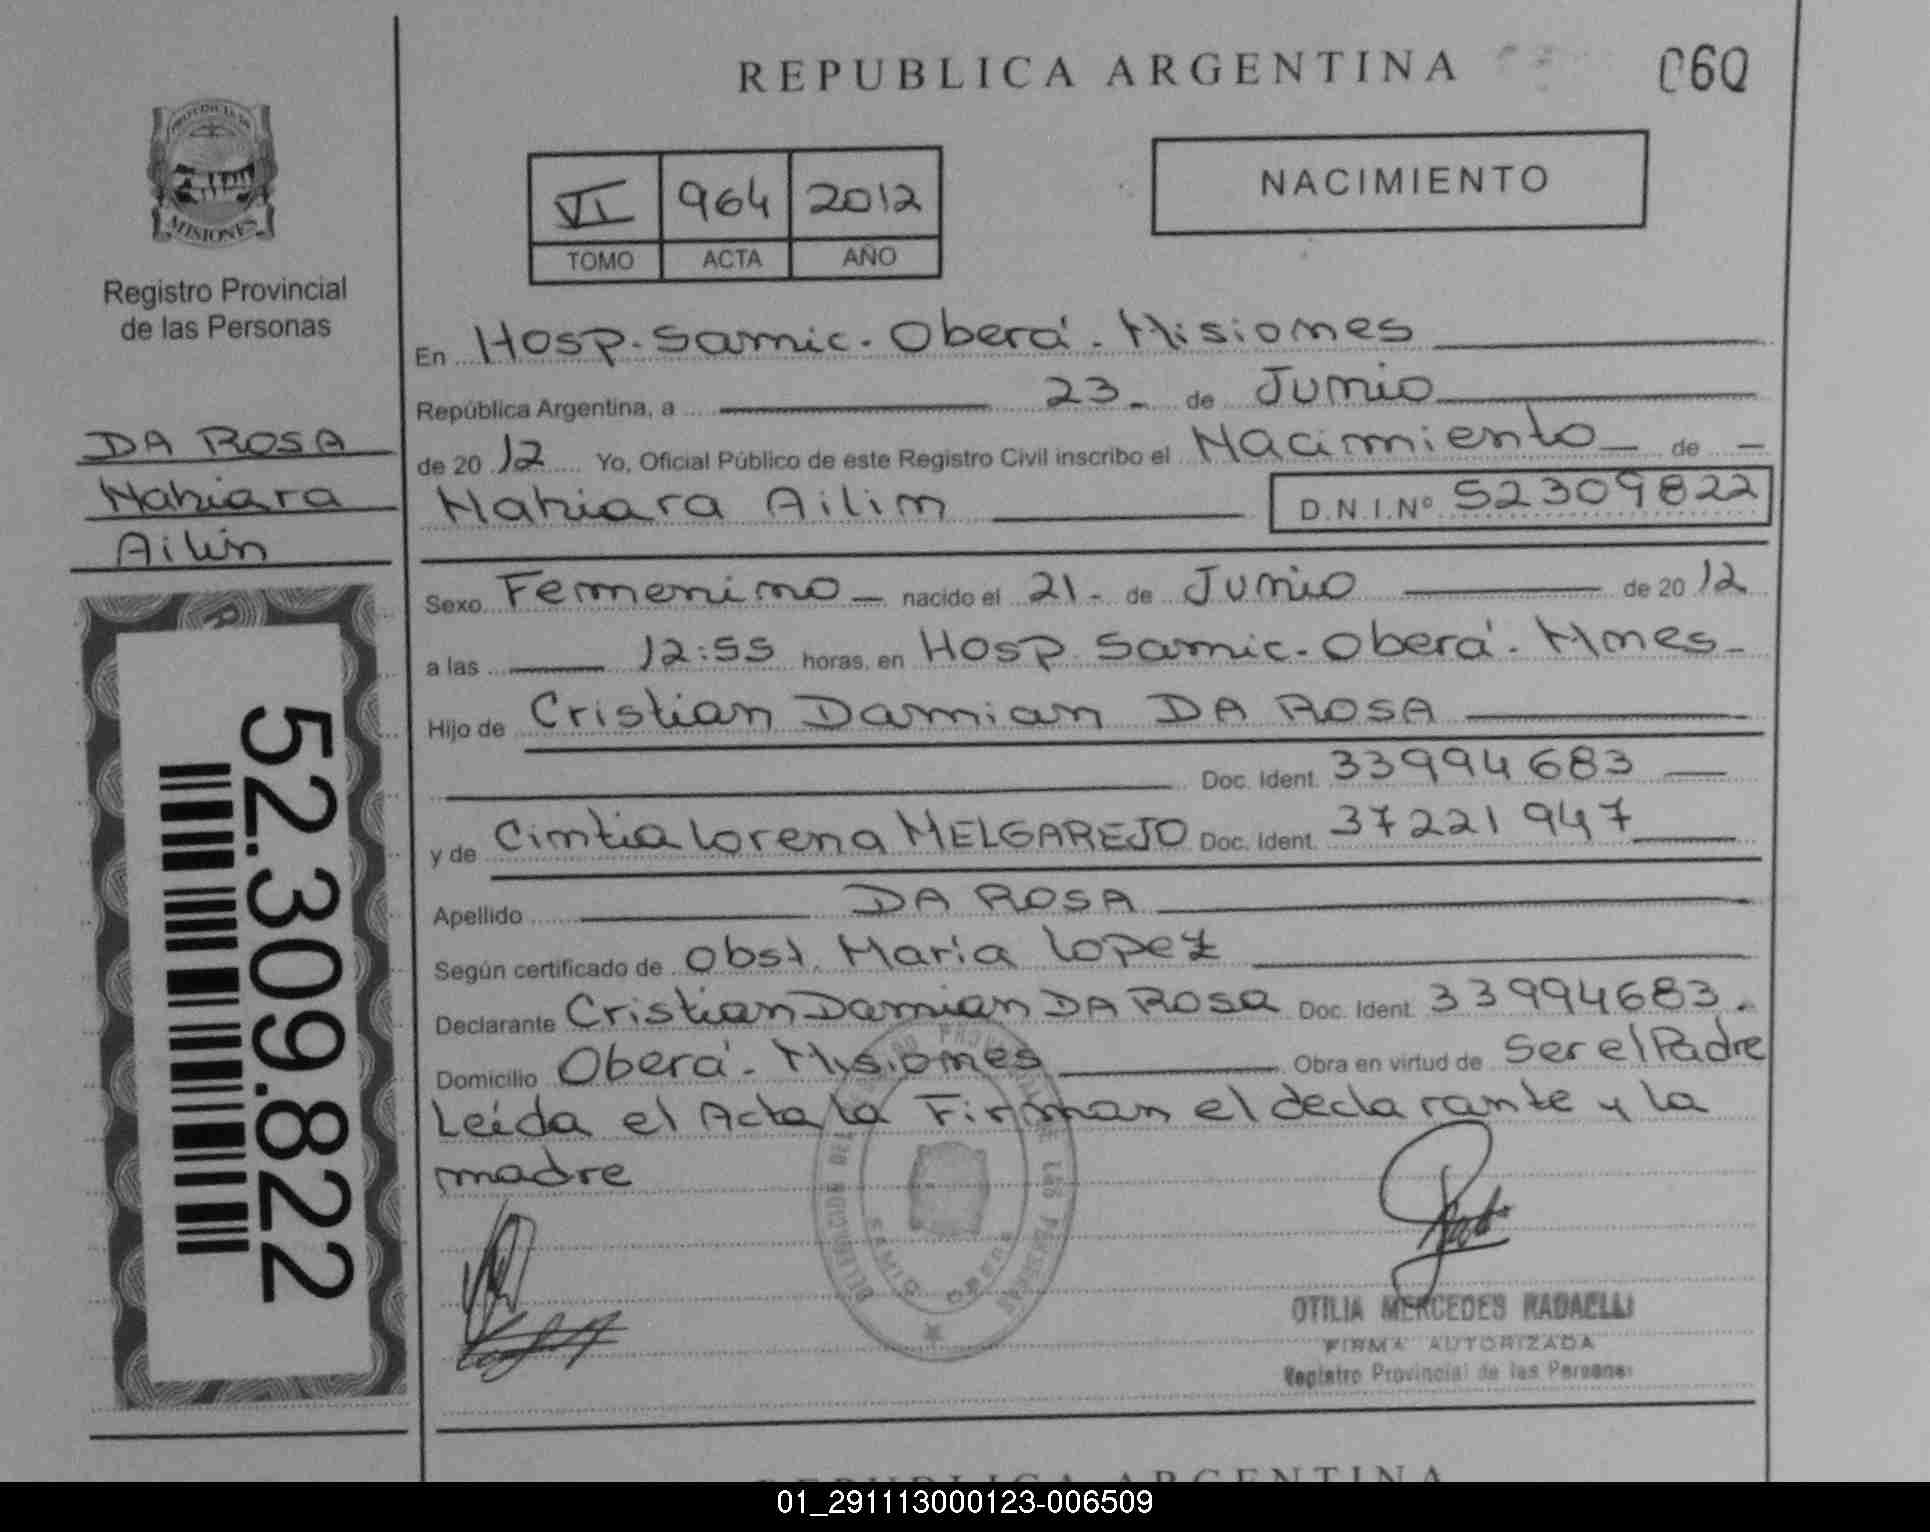 REPUBLICA ARGENTINA
060
PROVINCIA DE
MISIONES
Registro Provincial
de las Personas
VI 964 2012
TOMO ACTA AÑO
NACIMIENTO
DA ROSA
Nahiara
Ailin
52.309.822
En Hosp. Samic. Oberá. Misiones
República Argentina, a 23 de Junio
de 2012 Yo, Oficial Público de este Registro Civil inscribo el Nacimiento de
Nahiara Ailin D.N.I.Nº 52309822
Sexo Femenino nacido el 21 de Junio de 2012
a las 12:55 horas, en Hosp. Samic. Oberá. Mnes
Hijo de Cristian Damian DA ROSA
Doc. Ident. 33994683
y de Cintia Lorena MELGAREJO Doc. Ident. 37221947
Apellido DA ROSA
Según certificado de Obst. Maria Lopez
Declarante Cristian Damian DA ROSA Doc. Ident. 33994683.
Domicilio Oberá. Misiones Obra en virtud de Ser el Padre
Leída el Acta la Firman el declarante y la
madre
DELEGACION DEL REGISTRO PROVINCIAL DE LAS PERSONAS
SAMIC OBERA
OTILIA MERCEDES RADAELLI
FIRMA AUTORIZADA
Registro Provincial de las Personas
REPUBLICA ARGENTINA
01_291113000123-006509